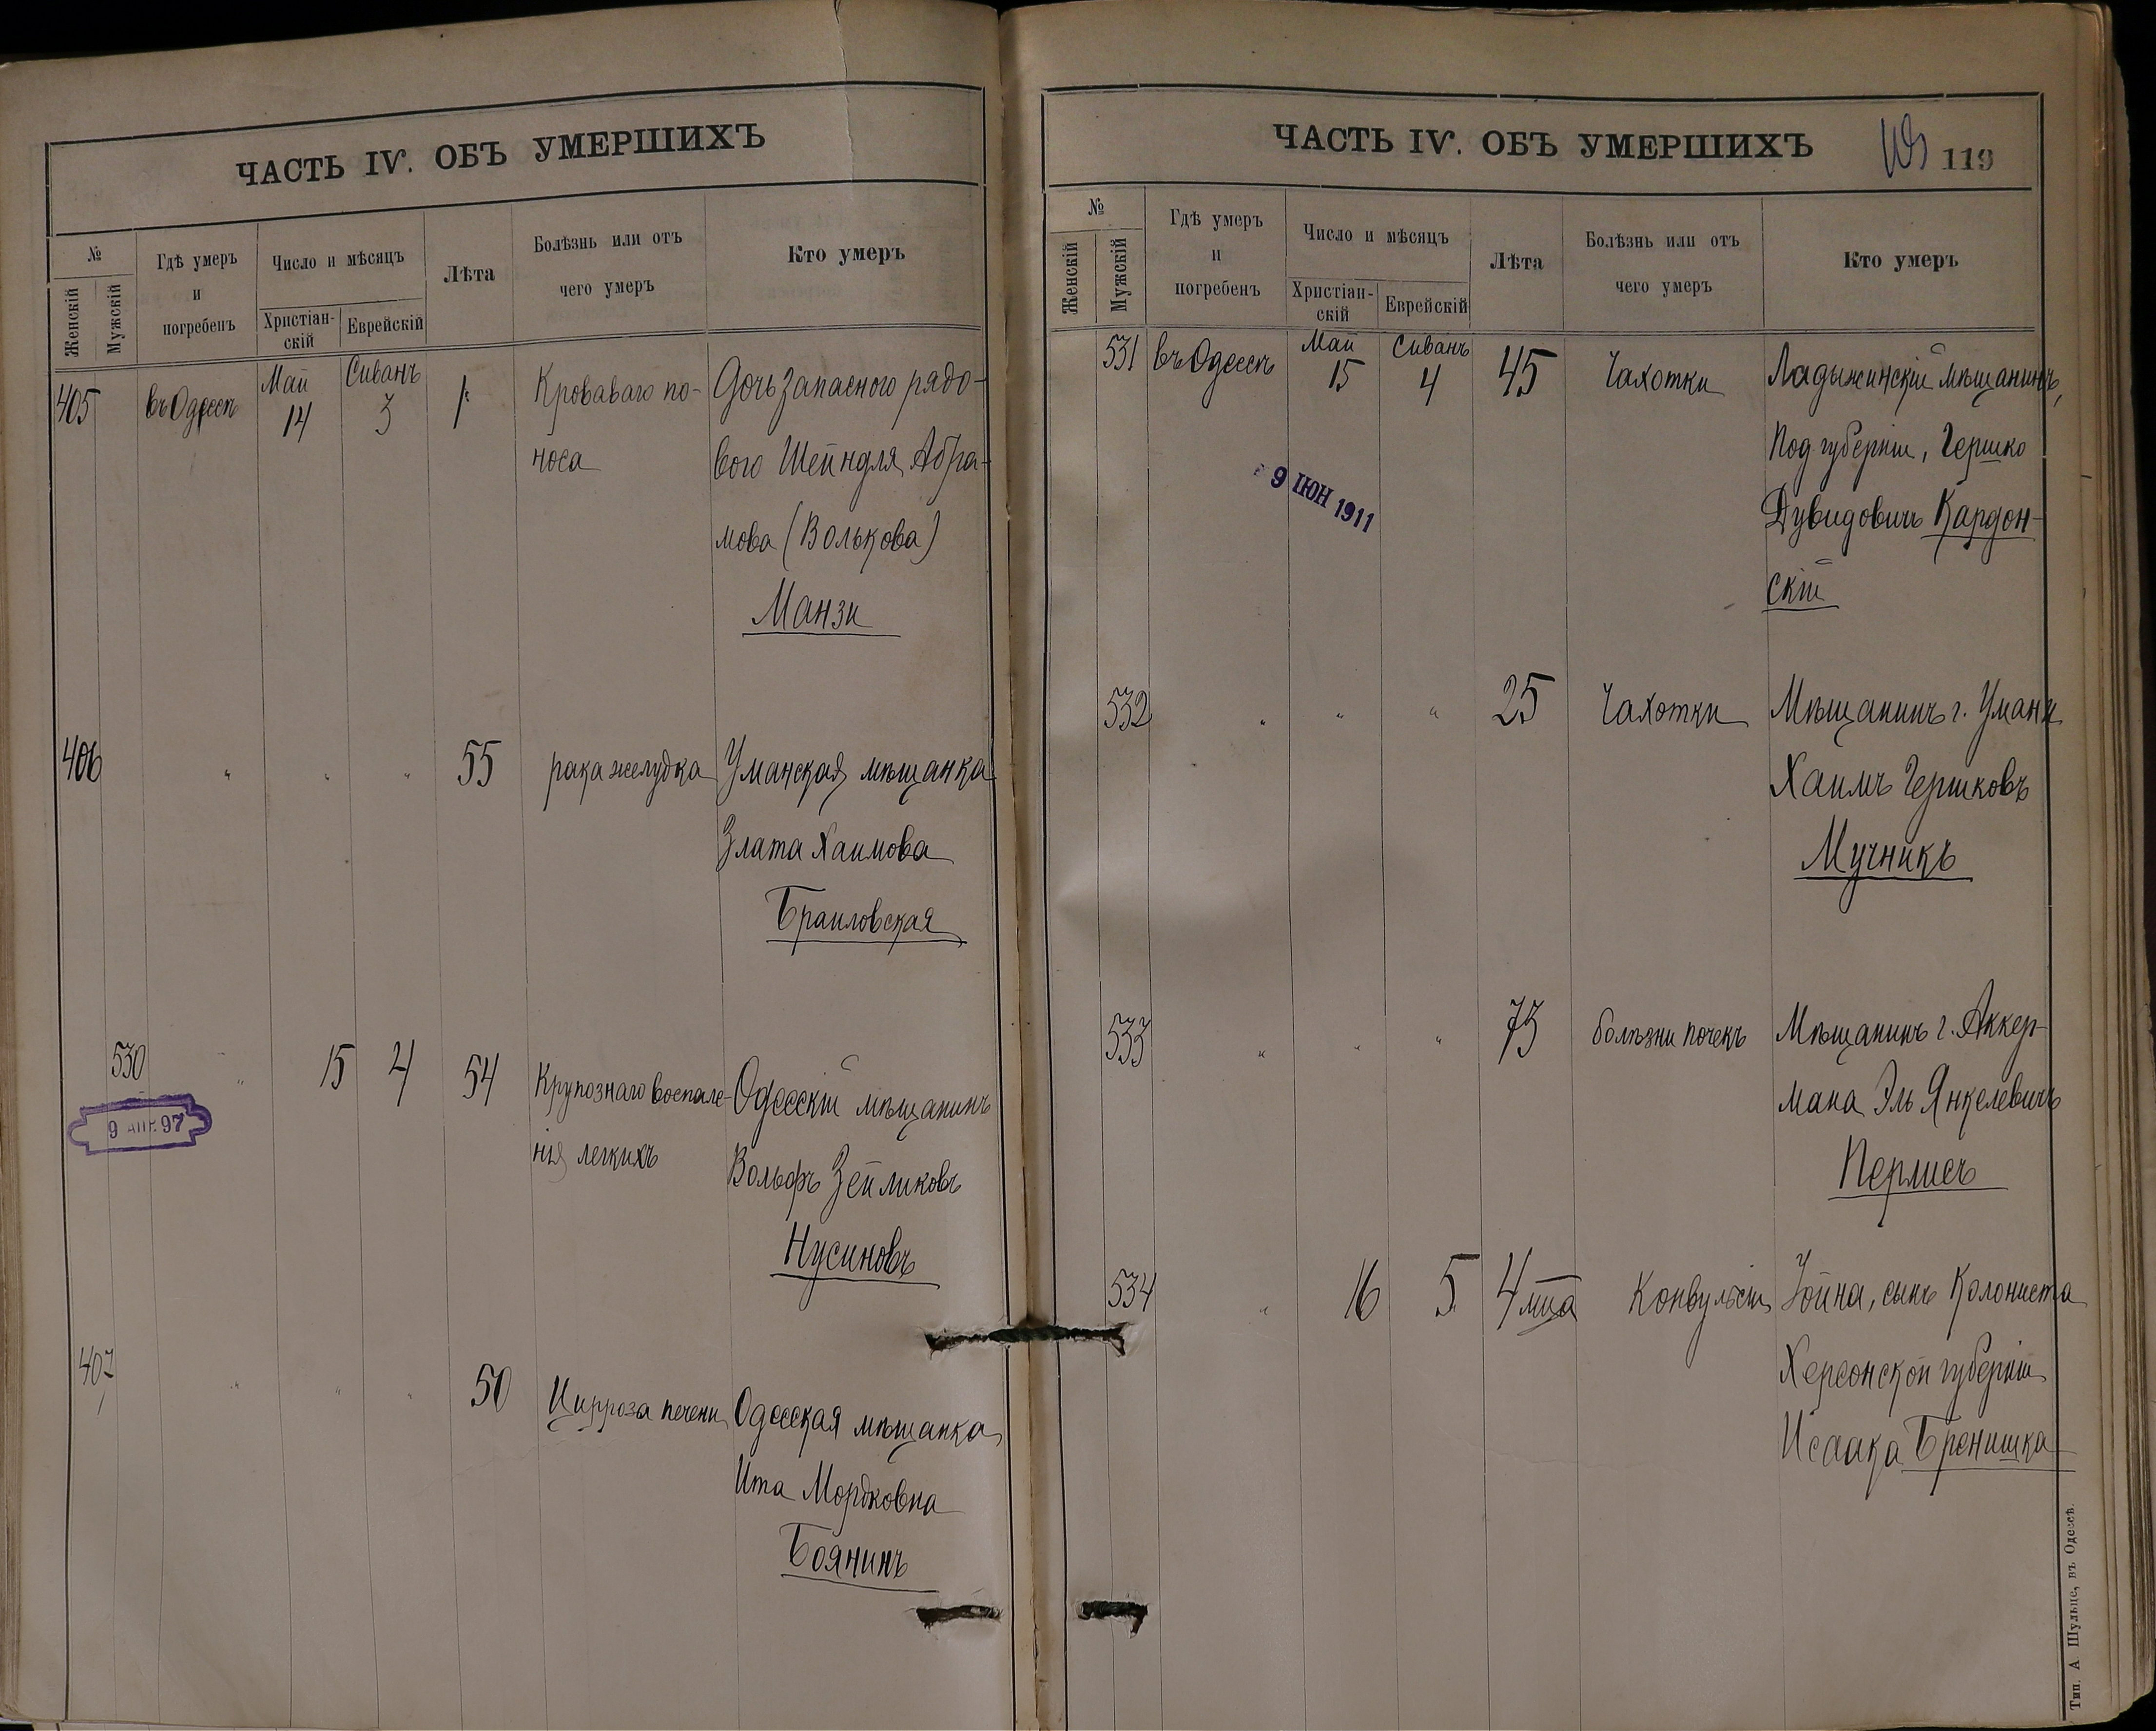 ЧАСТЬ IV. ОБЪ УМЕРШИХЪ
№
Женскій
Мужскій
Гдѣ умеръ
и
погребенъ
Число и мѣсяцъ
Христіан-
скій
Еврейскій
Лѣта
Болѣзнь или отъ
чего умеръ
Кто умеръ
405
въ Одессѣ
Май
14
Сиванъ
3
1
Кроваваго по-
носа
Дочь запасного рядо-
вого Шейндля Абра-
мова (Волькова)
Манзи
406
" " "
55
рака желудка
Уманская мѣщанка
Злата Хаимова
Браиловская
530
"
15
4
54
Крупознаго воспале-
нія легкихъ
Одесскій мѣщанинъ
Вольфъ Зейликовъ
Нусиновъ
9 АПР. 97
407
" " "
50
Цирроза печени
Одесская мѣщанка
Ита Мордковна
Боянинъ
ЧАСТЬ IV. ОБЪ УМЕРШИХЪ
119
№
Женскій
Мужскій
Гдѣ умеръ
и
погребенъ
Число и мѣсяцъ
Христіан-
скій
Еврейскій
Лѣта
Болѣзнь или отъ
чего умеръ
Кто умеръ
531
въ Одессѣ
Май
15
Сиванъ
4
45
Чахотки
Ладыжинскій мѣщанинъ,
Под губерніи, Гершко
Дувидовичъ Кардон-
скій
9 ІЮН 1911
532
" " "
25
Чахотки
Мѣщанинъ г. Умани
Хаимъ Гершковъ
Мучникъ
533
" " "
73
болѣзни почекъ
Мѣщанинъ г. Аккер-
мана Эль Янкелевичъ
Перлисъ
534
"
16
5
4 мца
Конвульсіи
Іойна, сынъ Колониста
Херсонской губерніи
Исаака Бренишка
Тип. А Шульце, въ Одессѣ.